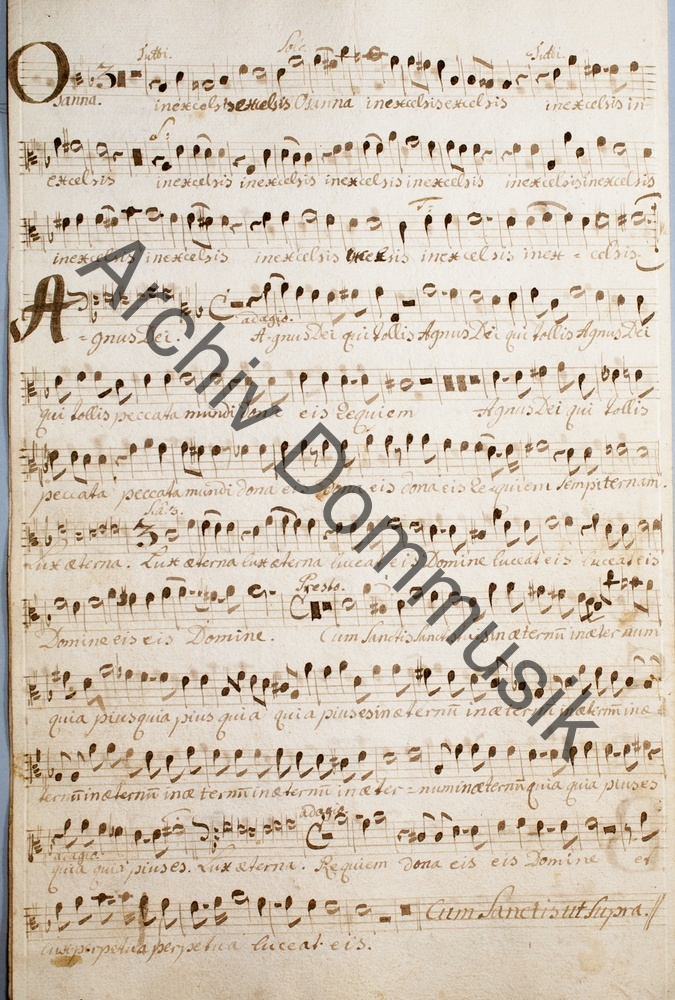 Tutti. Solo. Tutti
Osanna. in excelsis excelsis Osanna in excelsis excelsis in excelsis in
excelsis in excelsis in excelsis in excelsis in excelsis in excelsis in excelsis
in excelsis in excelsis in excelsis in excelsis in ex = celsis.
adagio.
A = gnus Dei. A-gnus Dei qui tollis Agnus Dei qui tollis Agnus Dei
qui tollis peccata mundi dona eis Requiem Agnus Dei qui tollis
peccata peccata mundi dona eis dona eis dona eis Requiem sempiternam.
Lux æterna. Lux æterna lux æterna luceat eis Domine luceat eis luceat eis
Presto.
Domine eis eis Domine. Cum Sanctis in æternū in æternum
quia pius quia pius quia quia pius es in æternū in æternū in æternū in æ
ternū in æternū in æternū in æternū in æter = num in æternū quia quia pius es
adagio
quia quia pius es. Lux æterna. Requiem dona eis eis Domine et
adagio
Cum Sanctis ut Supra.
lux perpetua perpetua luceat eis.
Archiv Dommusik